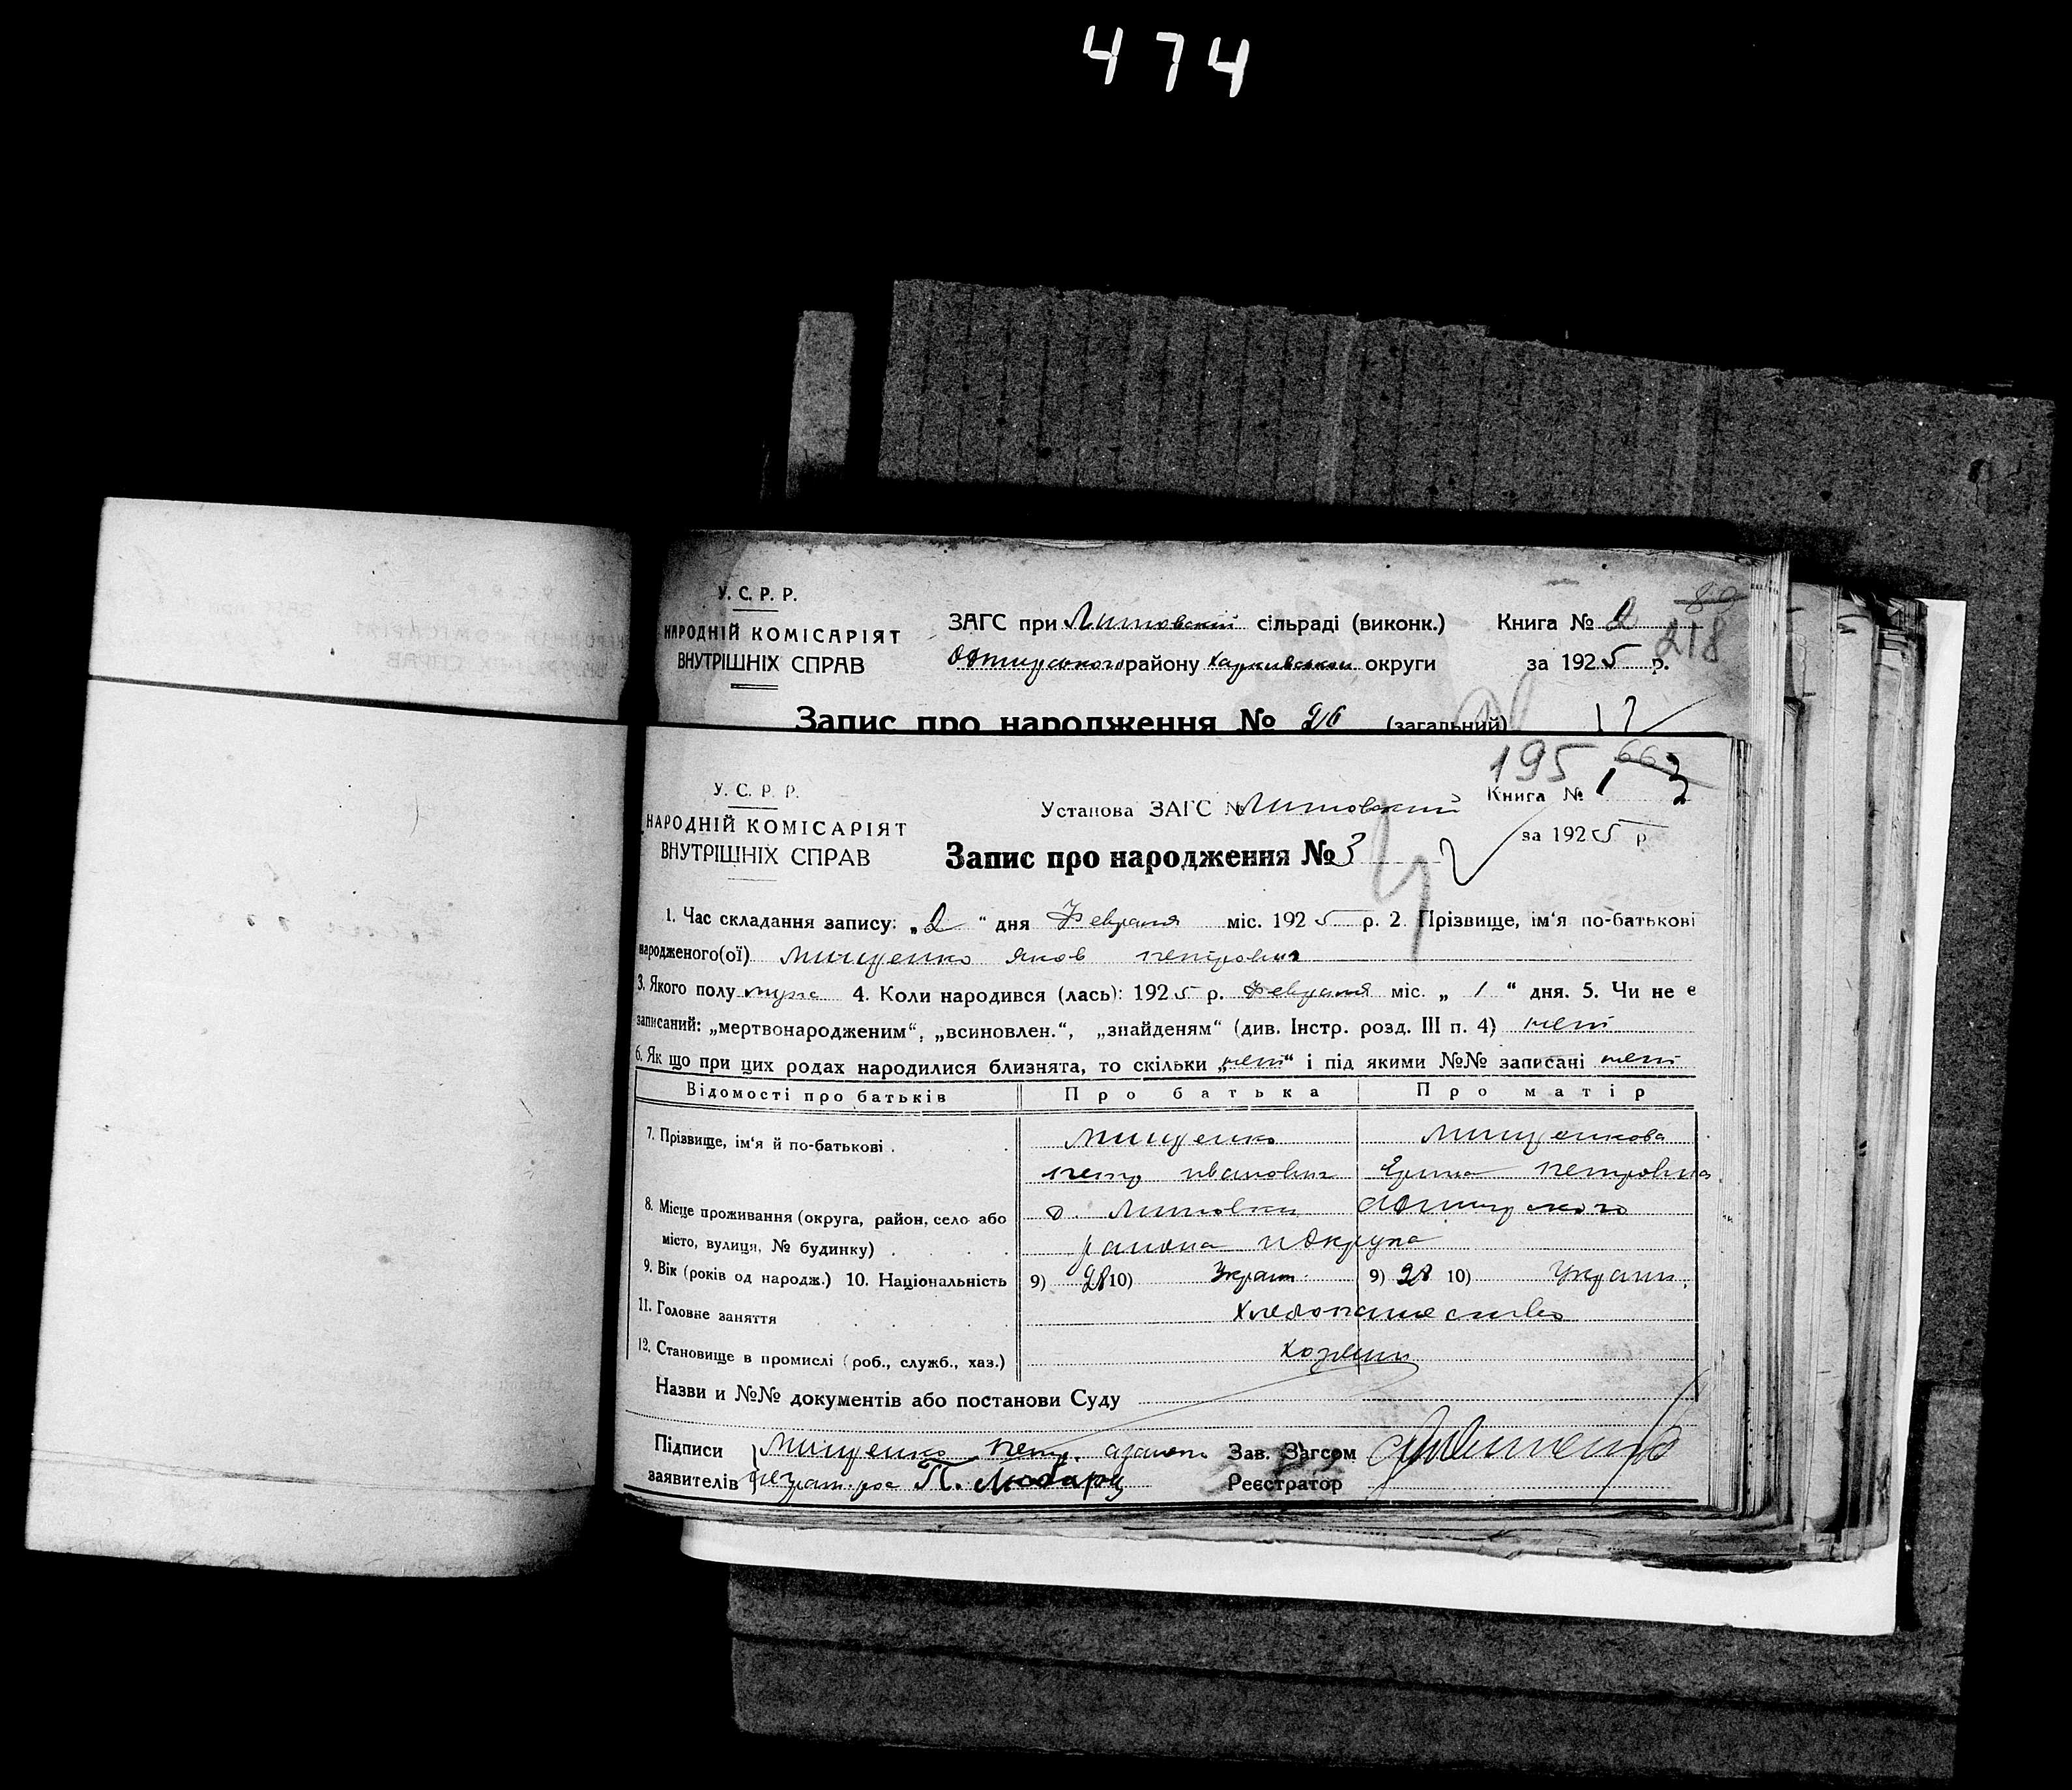 474
У. С. Р. Р.
НАРОДНІЙ КОМІСАРІЯТ
ВНУТРІШНІХ СПРАВ
ЗАГС при Литовский сільраді (виконк.)
району Харьковской округи
Книга № 2
218
за 1925 р.
Запис про народження № 26 (загальний)
195
У. С. Р. Р.
НАРОДНІЙ КОМІСАРІЯТ
ВНУТРІШНІХ СПРАВ
Установа ЗАГС № Литовский
Книга № 1
за 1925 р.
Запис про народження № 3
1. Час складання запису: „2“ дня Февраля міс. 1925 р. 2. Прізвище, ім'я по-батькові
народженого(ої) Мищенко Яков Петрович
3. Якого полу муж 4. Коли народився (лась): 1925 р. Февраля міс. „1“ дня. 5. Чи не є
записаний: „мертвонародженим“, „всиновлен.“, „знайденям“ (див. Інстр. розд. III п. 4) нет
6. Як що при цих родах народилися близнята, то скільки „нет“ і під якими №№ записані нет
Відомості про батьків Про батька Про матір
7. Прізвище, ім'я й по-батькові . Мищенко Мищенкова
Петр Иванович Петровна
8. Місце проживання (округа, район, село або
місто, вулиця, № будинку) района
9. Вік (років од народж.) 10. Національність 9) 28 10) Украин. 9) 28 10) Украин.
11. Головне заняття Хлебопашество
12. Становище в промислі (роб., служб., хаз.) Хозяин
Назви и №№ документів або постанови Суду
Підписи Мищенко Петр Зав. Загсом
заявителів П. Реєстратор